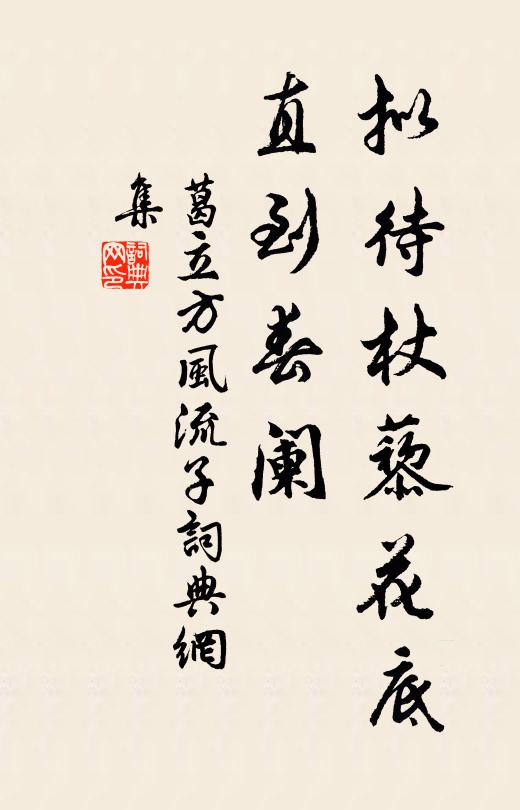 拟待杖藜花底
直到春阑
葛立方風流子詞典網
集
詞典网印